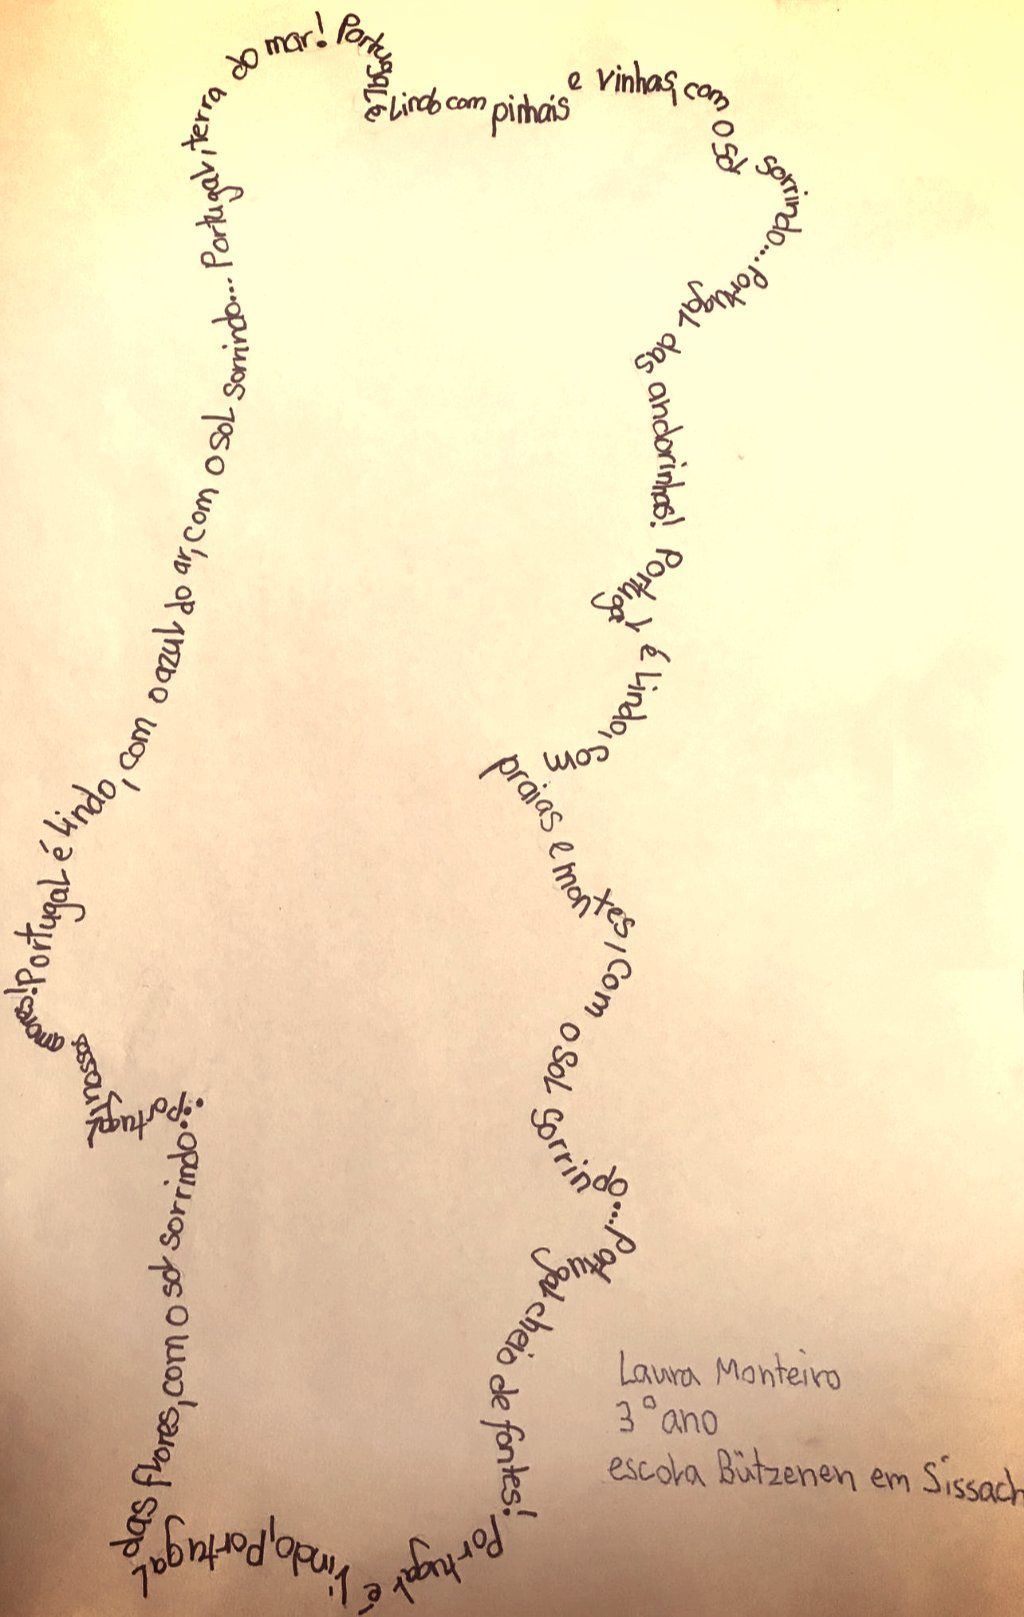 Portugal é lindo com pinhais e vinhas, com o sol sorrindo... Portugal das andorinhas!
Portugal é lindo, com praias e montes, com o sol sorrindo... Portugal cheio de fontes!
Portugal é lindo, Portugal das flores, com o sol sorrindo... Portugal, nossos amores!
Portugal é lindo, com o azul do ar, com o sol sorrindo... Portugal, terra do mar!
Laura Monteiro
3º ano
escola Bützenen em Sissach